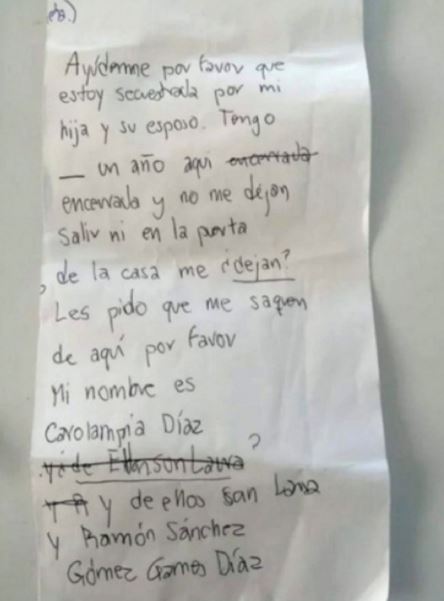 Ayúdenme por favor que
estoy secuestrada por mi
hija y su esposo. Tengo
— un año aquí encerrada
encerrada y no me dejan
salir ni en la puerta
de la casa me ¿dejan?
Les pido que me saquen
de aquí por favor
Mi nombre es
Carolampia Díaz
?
y de ellos san
y Ramón Sánchez
Gómez Games Díaz